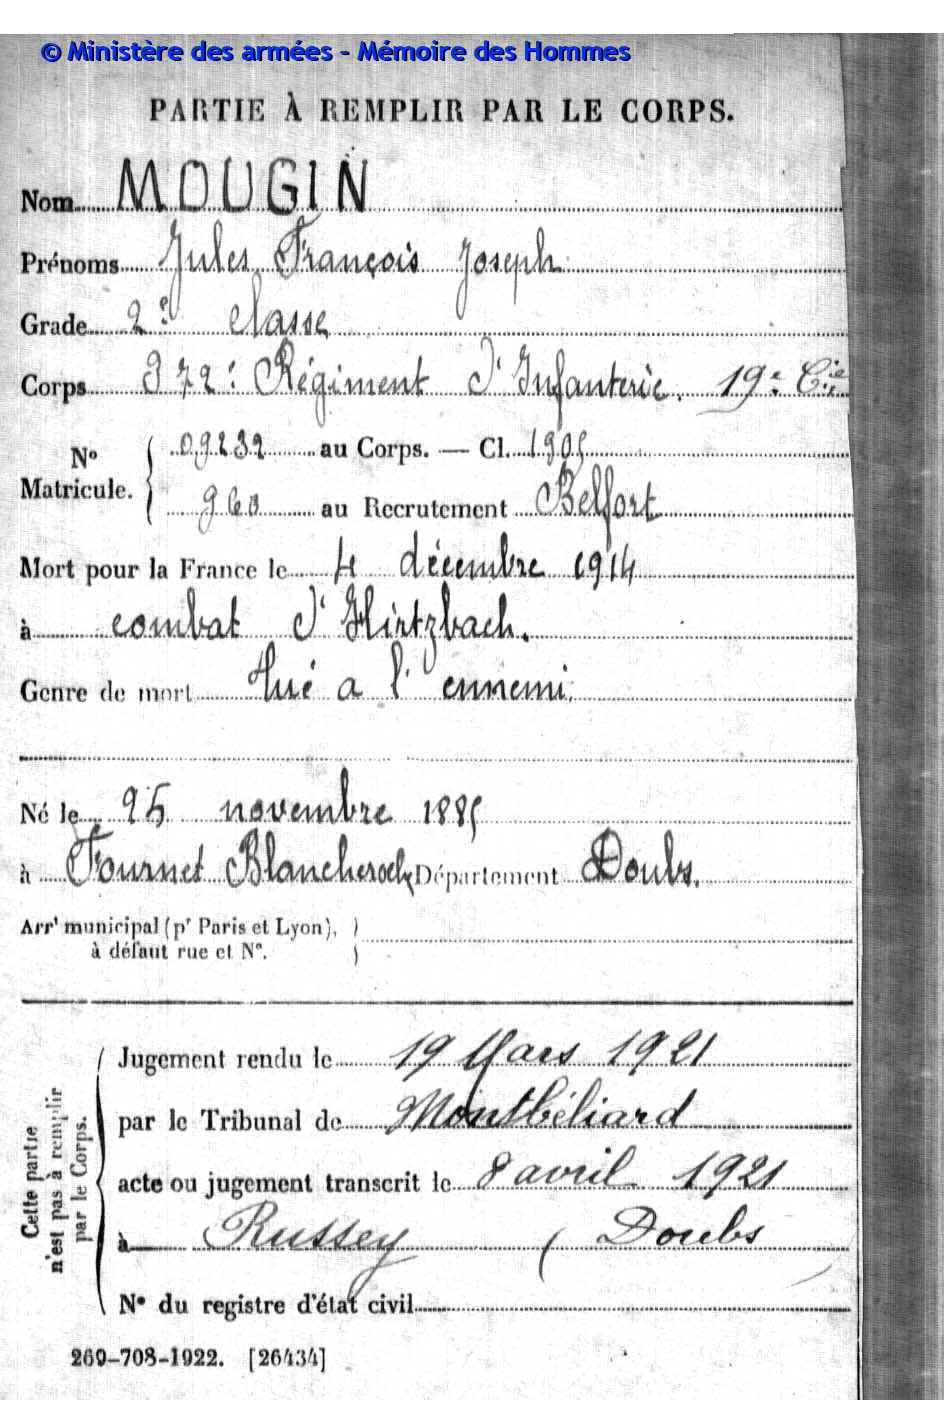 © Ministère des armées - Mémoire des Hommes
PARTIE À REMPLIR PAR LE CORPS.
Nom MOUGIN
Prénoms Jules François Joseph
Grade 2e classe
Corps 372e Régiment d'Infanterie. 19e Cie
N° Matricule. 09232 au Corps. — Cl. 1905
960 au Recrutement Belfort
Mort pour la France le 4 décembre 1914
à combat d'Hirtzbach.
Genre de mort Tué a l'ennemi.
Né le 25 novembre 1885
à Fournet Blancheroche Département Doubs.
Arrt municipal (pr Paris et Lyon),
à défaut rue et N°.
Cette partie n'est pas à remplir par le Corps.
Jugement rendu le 19 Mars 1921
par le Tribunal de Montbéliard
acte ou jugement transcrit le 8 avril 1921
à Russey (Doubs
N° du registre d'état civil
269-708-1922. [26434]